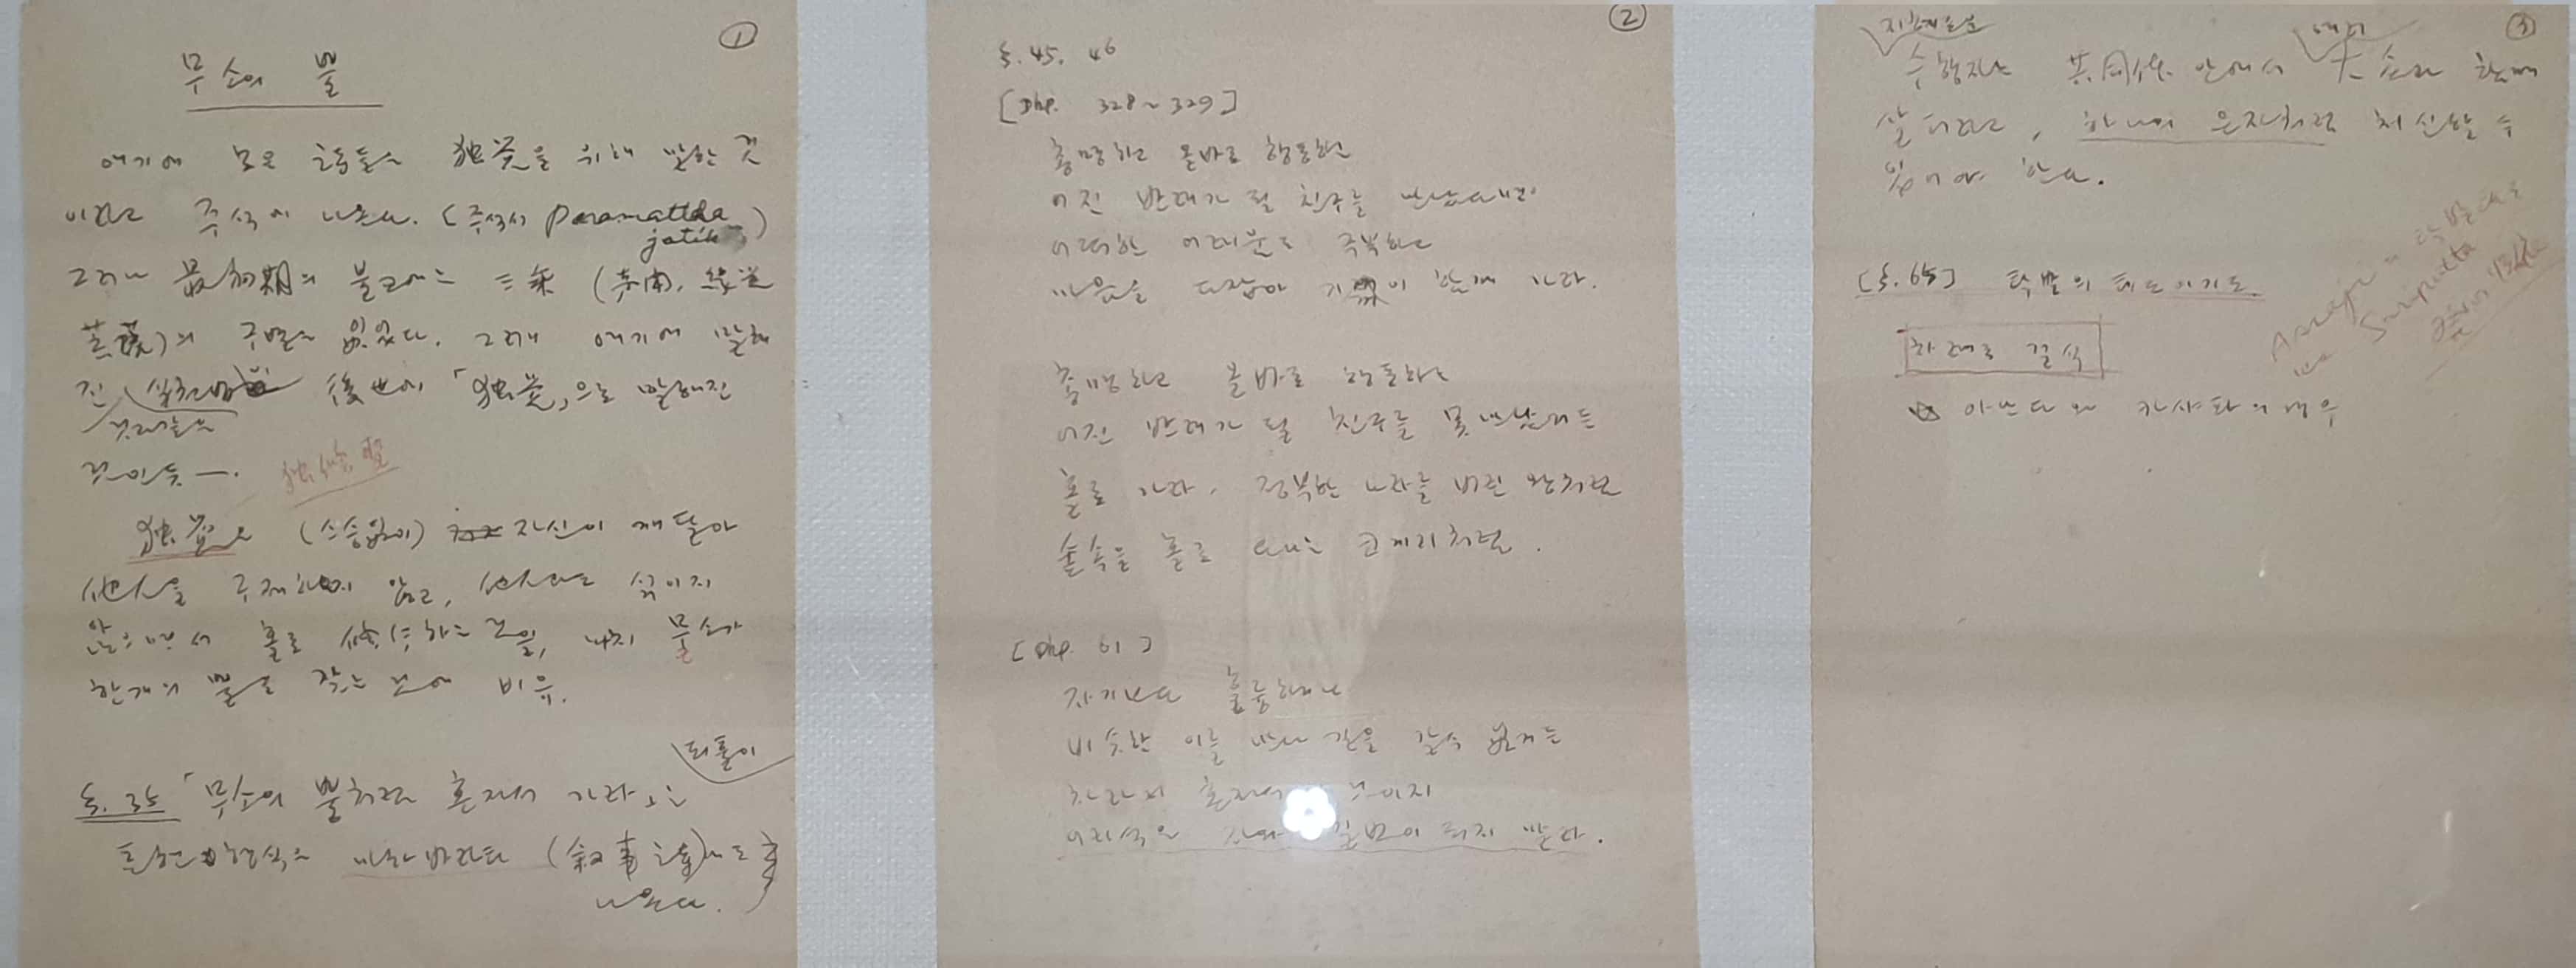 ①
무소의 뿔
여기에 모은 詩들은 独覚을 위해 말한 것
이라고 주석에 나온다. (주석서 Paramattha
jotik
그러나 最初期의 불교에는 三乘 (声聞, 緣覚
菩薩)의 구별은 없었다. 그래 여기에 말해
진 後世에 「独覚」으로 말해진
것인듯 ―.
独覚은 (스승없이) 자신이 깨달아
他人을 구제하지 않고, 他人과도 섞이지
않으면서 홀로 修行하는 것을, 마치 무소가
한개의 뿔을 갖는 것에 비유.
되풀이
S. 35 「무소의 뿔처럼 혼자서 가라」는
표현형식은 마하바라타 (叙事詩)에도
나온다.
②
S. 45. 46
[Dhp. 328~329]
총명하고 올바로 행동하는
어진 반려가 될 친구를 만난다면
어떠한 어려움도 극복하고
마음을 다잡아 기꺼이 함께 가라.
총명하고 올바로 행동하는
어진 반려가 될 친구를 못 만났거든
홀로 가라. 정복한 나라를 버린 왕처럼
숲속을 홀로 다니는 코끼리처럼.
[Dhp. 61]
자기보다 훌륭하거나
비슷한 이를 만나 길을 갈 수 없거든
차라리 혼자서
어리석은 길벗이 되지 말라.
③
수행자는 共同体 안에서 大衆과 함께
살더라도, 하나의 은자처럼 처신할 수
있어야 한다.
[S. 65] 탁발의 태도이기도.
차례로 걸식
Assaji
Sariputta
아난다와 가샤파의 경우